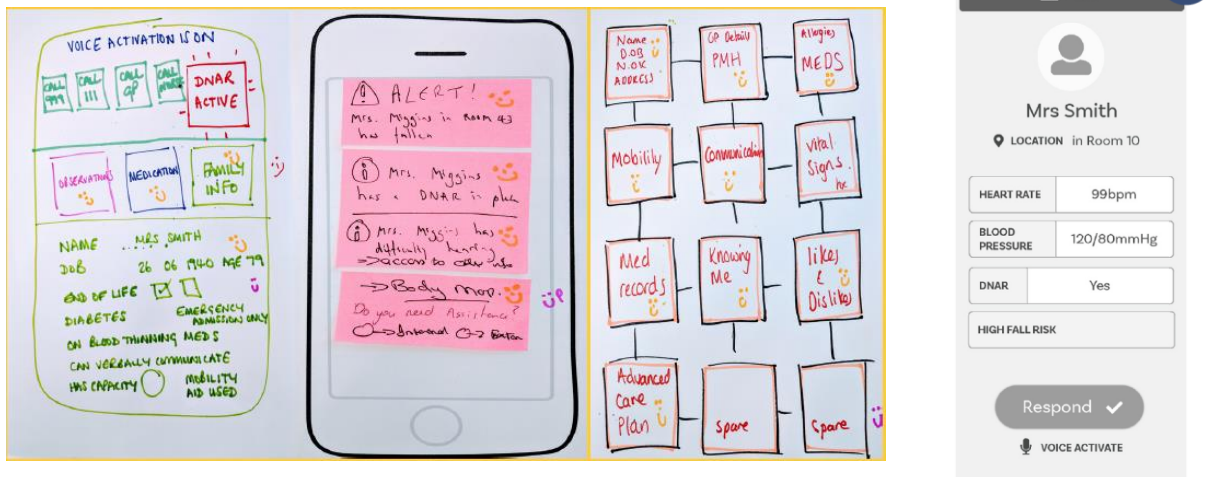 VOICE ACTIVATION IS ON
CALL 999
CALL 111
CALL GP
CALL NURSE
DNAR
ACTIVE
OBSERVATIONS
MEDICATION
FAMILY
INFO
NAME MRS SMITH
DOB 26 06 1940 AGE 79
END OF LIFE
DIABETES EMERGENCY
ADMISSION ONLY
ON BLOOD THINNING MEDS
CAN VERBALLY COMMUNICATE
HAS CAPACITY MOBILITY
AID USED
ALERT!
Mrs. Miggins in Room 43
has fallen
Mrs. Miggins
has a DNAR in place
Mrs. Miggins has
difficulty hearing
access to other info
Body Map.
Do you need Assistance?
Internal Exter
Name
D.O.B
N.O.K
ADDRESS
GP Details
PMH
Allergies
MEDS
Mobility
Communication
Vital
Signs.
hx
Med
records
Knowing
Me
likes
&
Dislikes
Advanced
Care
Plan
Spare
Spare
Mrs Smith
LOCATION in Room 10
HEART RATE 99bpm
BLOOD
PRESSURE 120/80mmHg
DNAR Yes
HIGH FALL RISK
Respond
VOICE ACTIVATE